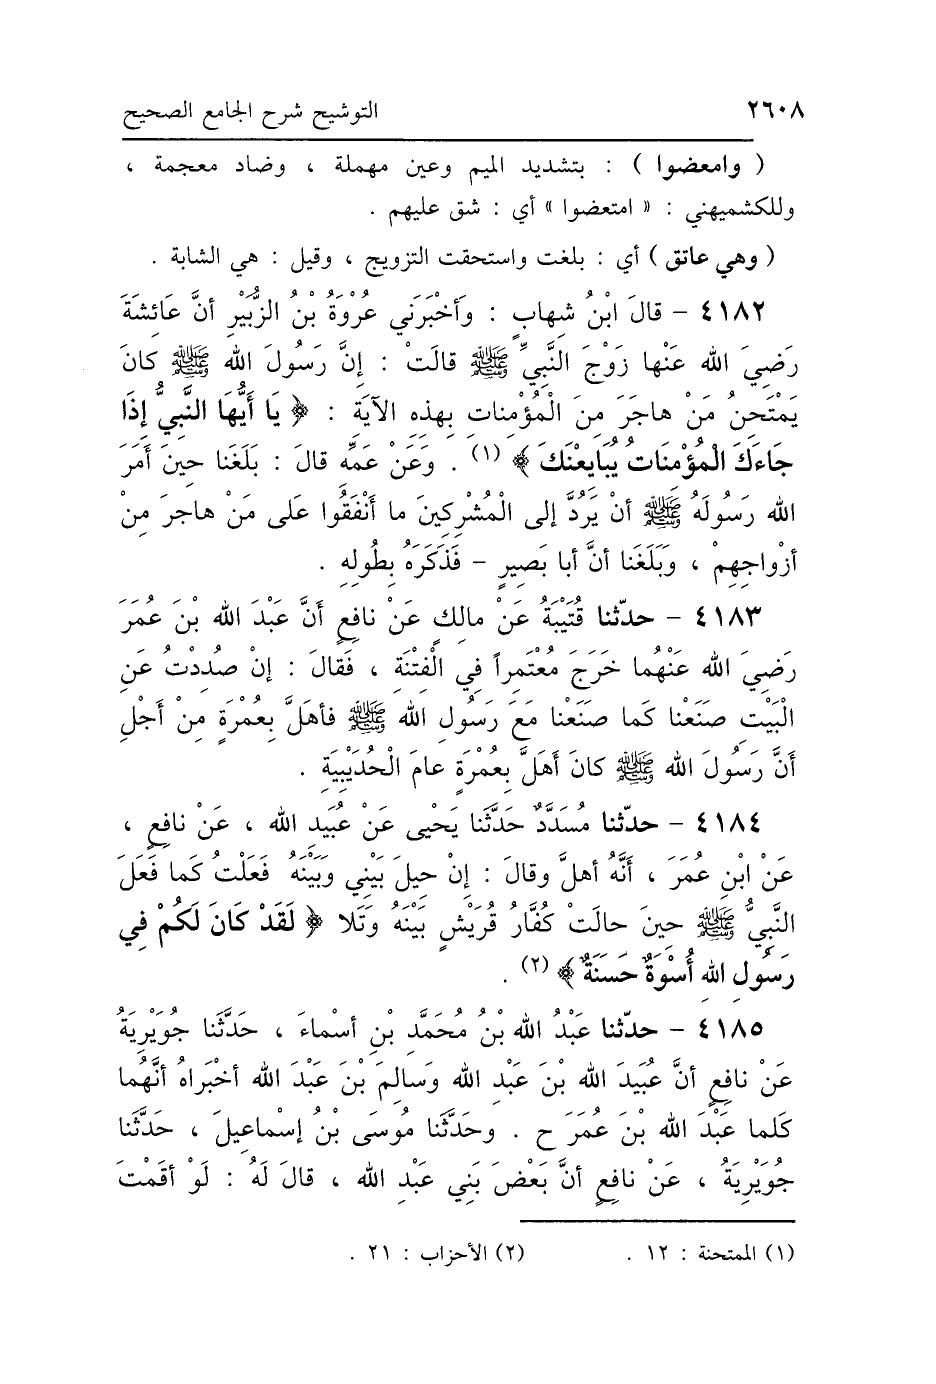 ٢٦٠٨
التوشيح شرح الجامع الصحيح
( وامعضوا ) : بتشديد الميم وعين مهملة ، وضاد معجمة ،
وللكشميهني : « امتعضوا » أي : شق عليهم .
( وهي عاتق ) أي : بلغت واستحقت التزويج ، وقيل : هي الشابة .
٤١٨٢ – قالَ ابْنُ شهابٍ : وَأخْبَرَني عُرْوَةُ بْنُ الزُّبَيْرِ أنَّ عَائِشَةَ
رَضيَ الله عَنْها زَوْجَ النَّبيِّ ﷺ قالَتْ : إنَّ رَسُولَ الله ﷺ كانَ
يَمْتَحنُ مَنْ هاجَرَ منَ الْمُؤْمنات بهذه الآيَة : ﴿ يَا أَيُّهَا النَّبيُّ إذَا
جَاءَكَ الْمُؤْمنَاتُ يُبَايعْنَكَ ﴾ (١) . وَعَنْ عَمِّه قالَ : بَلَغَنا حينَ أَمَرَ
الله رَسُولَهُ ﷺ أنْ يَرُدَّ إلى الْمُشْركينَ ما أَنْفَقُوا عَلى مَنْ هاجرَ منْ
أزْواجِهِمْ ، وَبَلَغَنا أنَّ أبا بَصيرٍ – فَذَكَرَهُ بطُولِهِ .
٤١٨٣ – حدّثنا قُتَيْبَةُ عَنْ مالكٍ عَنْ نافِعٍ أنَّ عَبْدَ الله بْنَ عُمَرَ
رَضِيَ الله عَنْهُما خَرَجَ مُعْتَمِراً في الْفِتْنَة ، فَقالَ : إنْ صُددْتُ عَنِ
الْبَيْت صَنَعْنا كَما صَنَعْنا مَعَ رَسُول الله ﷺ فأهَلَّ بِعُمْرَةٍ منْ أَجْلِ
أنَّ رَسُولَ الله ﷺ كانَ أهَلَّ بِعُمْرَةٍ عامَ الْحُدَيْبِيَةِ .
٤١٨٤ – حدّثنا مُسَدَّدٌ حَدَّثَنا يَحْيى عَنْ عُبَيْدِ الله ، عَنْ نافِعٍ ،
عَنْ ابْنِ عُمَرَ ، أنَّهُ أهلَّ وقالَ : إنْ حِيلَ بَيْني وَبَيْنَهُ فَعَلْتُ كَما فَعَلَ
النَّبيُّ ﷺ حينَ حالَتْ كُفَّارُ قُرَيْشٍ بَيْنَهُ وَتَلا ﴿ لَقَدْ كَانَ لَكُمْ في
رَسُول الله أُسْوَةٌ حَسَنَةٌ ﴾ (٢) .
٤١٨٥ – حدّثنا عَبْدُ الله بْنُ مُحَمَّدِ بْنِ أسْماءَ ، حَدَّثَنا جُوَيْرِيَةُ
عَنْ نافِعٍ أنَّ عُبَيدَ الله بْنَ عَبْدِ الله وَسالِمَ بْنَ عَبْدِ الله أخْبَراهُ أنَّهُما
كَلما عَبْدَ الله بْنَ عُمَرَ ح . وحَدَّثَنا مُوسَى بْنُ إسْماعيلَ ، حَدَّثَنا
جُوَيْرِيَةُ ، عَنْ نافِعٍ أنَّ بَعْضَ بَنِي عَبْدِ الله ، قالَ لَهُ : لَوْ أقَمْتَ
(١) الممتحنة : ١٢ .
(٢) الأحزاب : ٢١ .